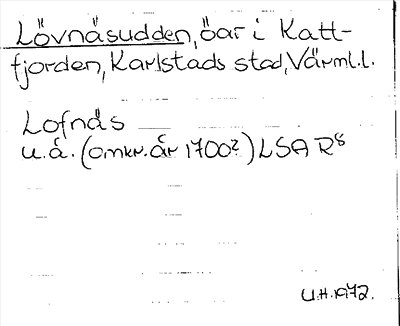 Lövnäsudden, öar i Katt-
fjorden, Karlstads stad, Värml.l.
Lofnäs
u.å. (omkr. år 1700?) LSA R8
U.H. 1972.